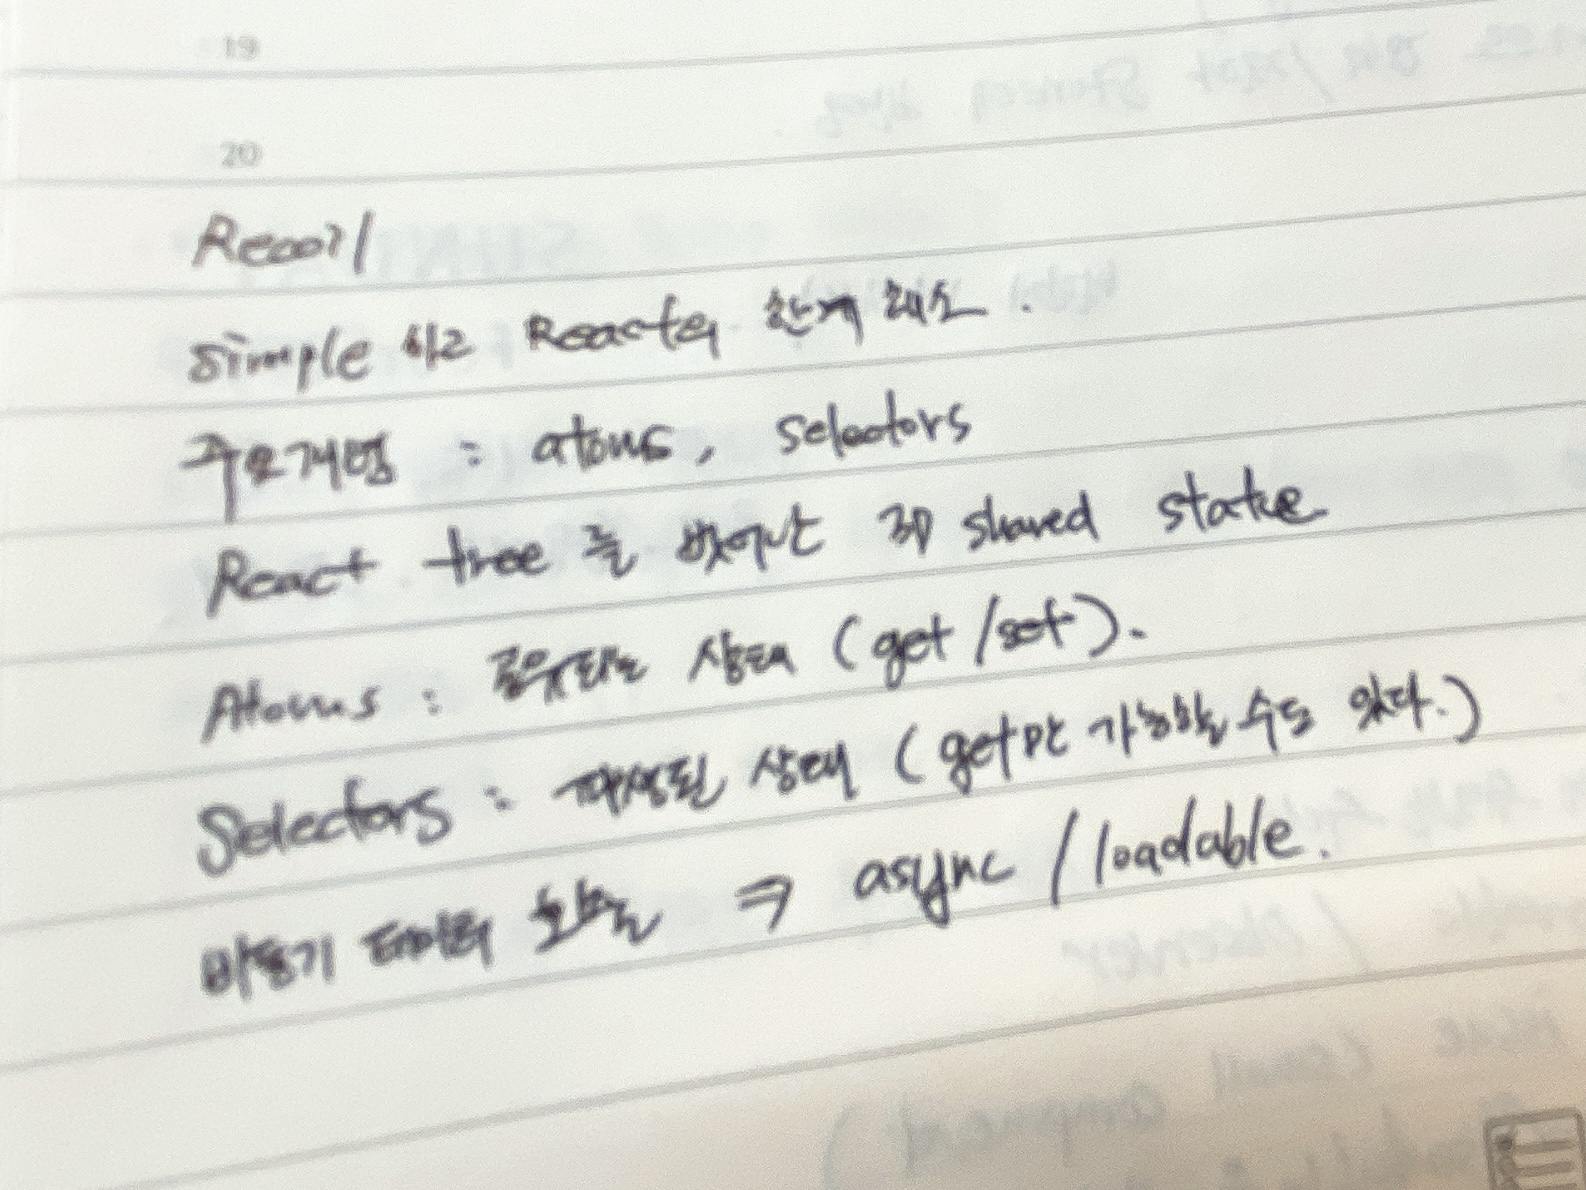 19
20
Recoil
Simple 하고 React의 한계 해소.
주요개념 : atoms, selectors
React tree 를 벗어난 3D shared state
Atoms : 공유되는 상태 (get/set).
Selectors : 파생된 상태 (get만 가능할 수도 있다.)
비동기 데이터 호출 ⇒ async / loadable.